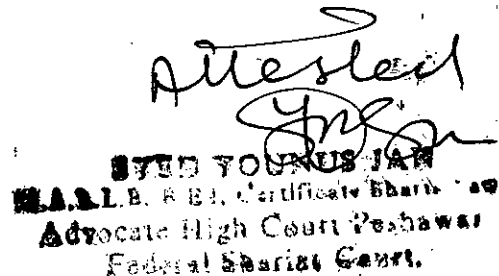 Attested
SYED YOUNUS JAN
M.A.L.L.B. B.Ed. Certificate Shariah Law
Advocate High Court Peshawar
Federal Shariat Court.